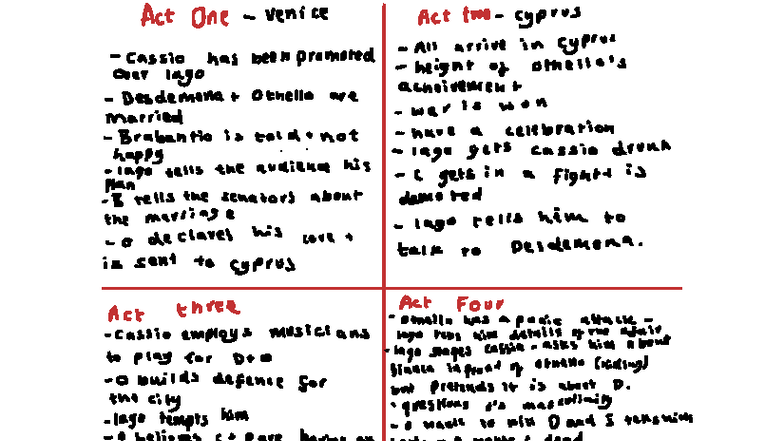 Act One - Venice
- Cassio has been promoted
over Iago
- Desdemona + Othello are
married
- Brabantio is told + not
happy
- Iago tells the audience his
Plan
- B tells the senators about
the marriage
- O declares his love +
is sent to Cyprus
Act two - Cyprus
- All arrive in Cyprus
- height of Othello's
acheivement
- war is won
- have a celebration
- Iago gets Cassio drunk
- C gets in a fight + is
demoted
- Iago tells him to
talk to Desdemona.
Act three
- Cassio employs musicians
to play for D + O
- O builds defence for
the city
- Iago tempts him
- O believes C + D are having an
Act Four
- Othello has a panic attack -
Iago tells him details of the affair
- Iago stages Cassio - asks him about
Bianca infront of Othello (hiding)
but pretends it is about D.
- questions O's masculinity
- O wants to kill D and